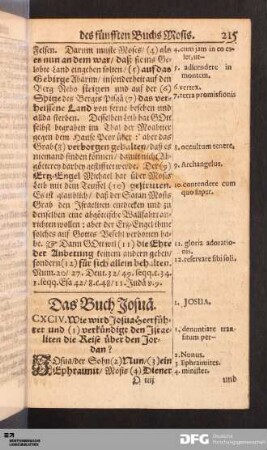 des fünfften Buchs Mosis. 215
Felsen. Darum muste Moses/ (4) als
es nun an dem war/ daß sie ins Ge-
lobte Land eingehen solten/ (5) auf das
Gebirge Abarim/ insonderheit auf den
Berg Nebo steigen/ und auf der (6)
Spitze des Berges Pisga (7) das ver-
heissene Land von ferne besehen und
alda sterben. Desselben Leib hat GOtt
selbst begraben im Thal der Moabiter
gegen dem Hause Peor über: aber das
Grab (8) verborgen gehalten/ daß es
niemand finden können/ damit nicht Ab-
götterey darbey gestifftet werde. Der (9)
Ertz-Engel Michael hat über Mosis
Leib mit dem Teufel (10) gestritten.
Es ist glaublich/ daß der Satan Mosis
Grab den Israeliten entdecken und zu
denselben eine abgöttische Wallfahrt an-
richten wollen: aber der Ertz-Engel ihme
solches auf Gottes Befehl verboten ha-
be. Dann GOtt will (11) die Ehre
der Anbetung keinem andern geben/
sondern (12) für sich allein behalten.
Num. 20/ 27. Deut. 32/ 49. seqq. c. 34.
1. seqq. Esa 42/ 8. c. 48/ 11. Judä v. 9.
4. cum jam in eo es-
set, ut--
5. adscendere in
montem.
6. vertex.
7. terra promissionis
8. occultum tenere.
9. Archangelus.
10. contendere cum
quo super.
11. gloria adoratio-
nis.
12. reservare sibi soli.
Das Buch Josuä.
CXCIV. Wie wird Josua Heerfüh-
rer und (1) verkündigt den Israe-
liten die Reise über den Jor-
dan?
Josua/ der Sohn (2) Nun/ (3) ein
Ephraimit/ Mosis (4) Diener
O iiij
und
1. JOSUA.
1. denuntiare tran-
situm per--
2. Nonus.
3. Ephraimites.
4. minister.
DFG Deutsche
Forschungsgemeinschaft